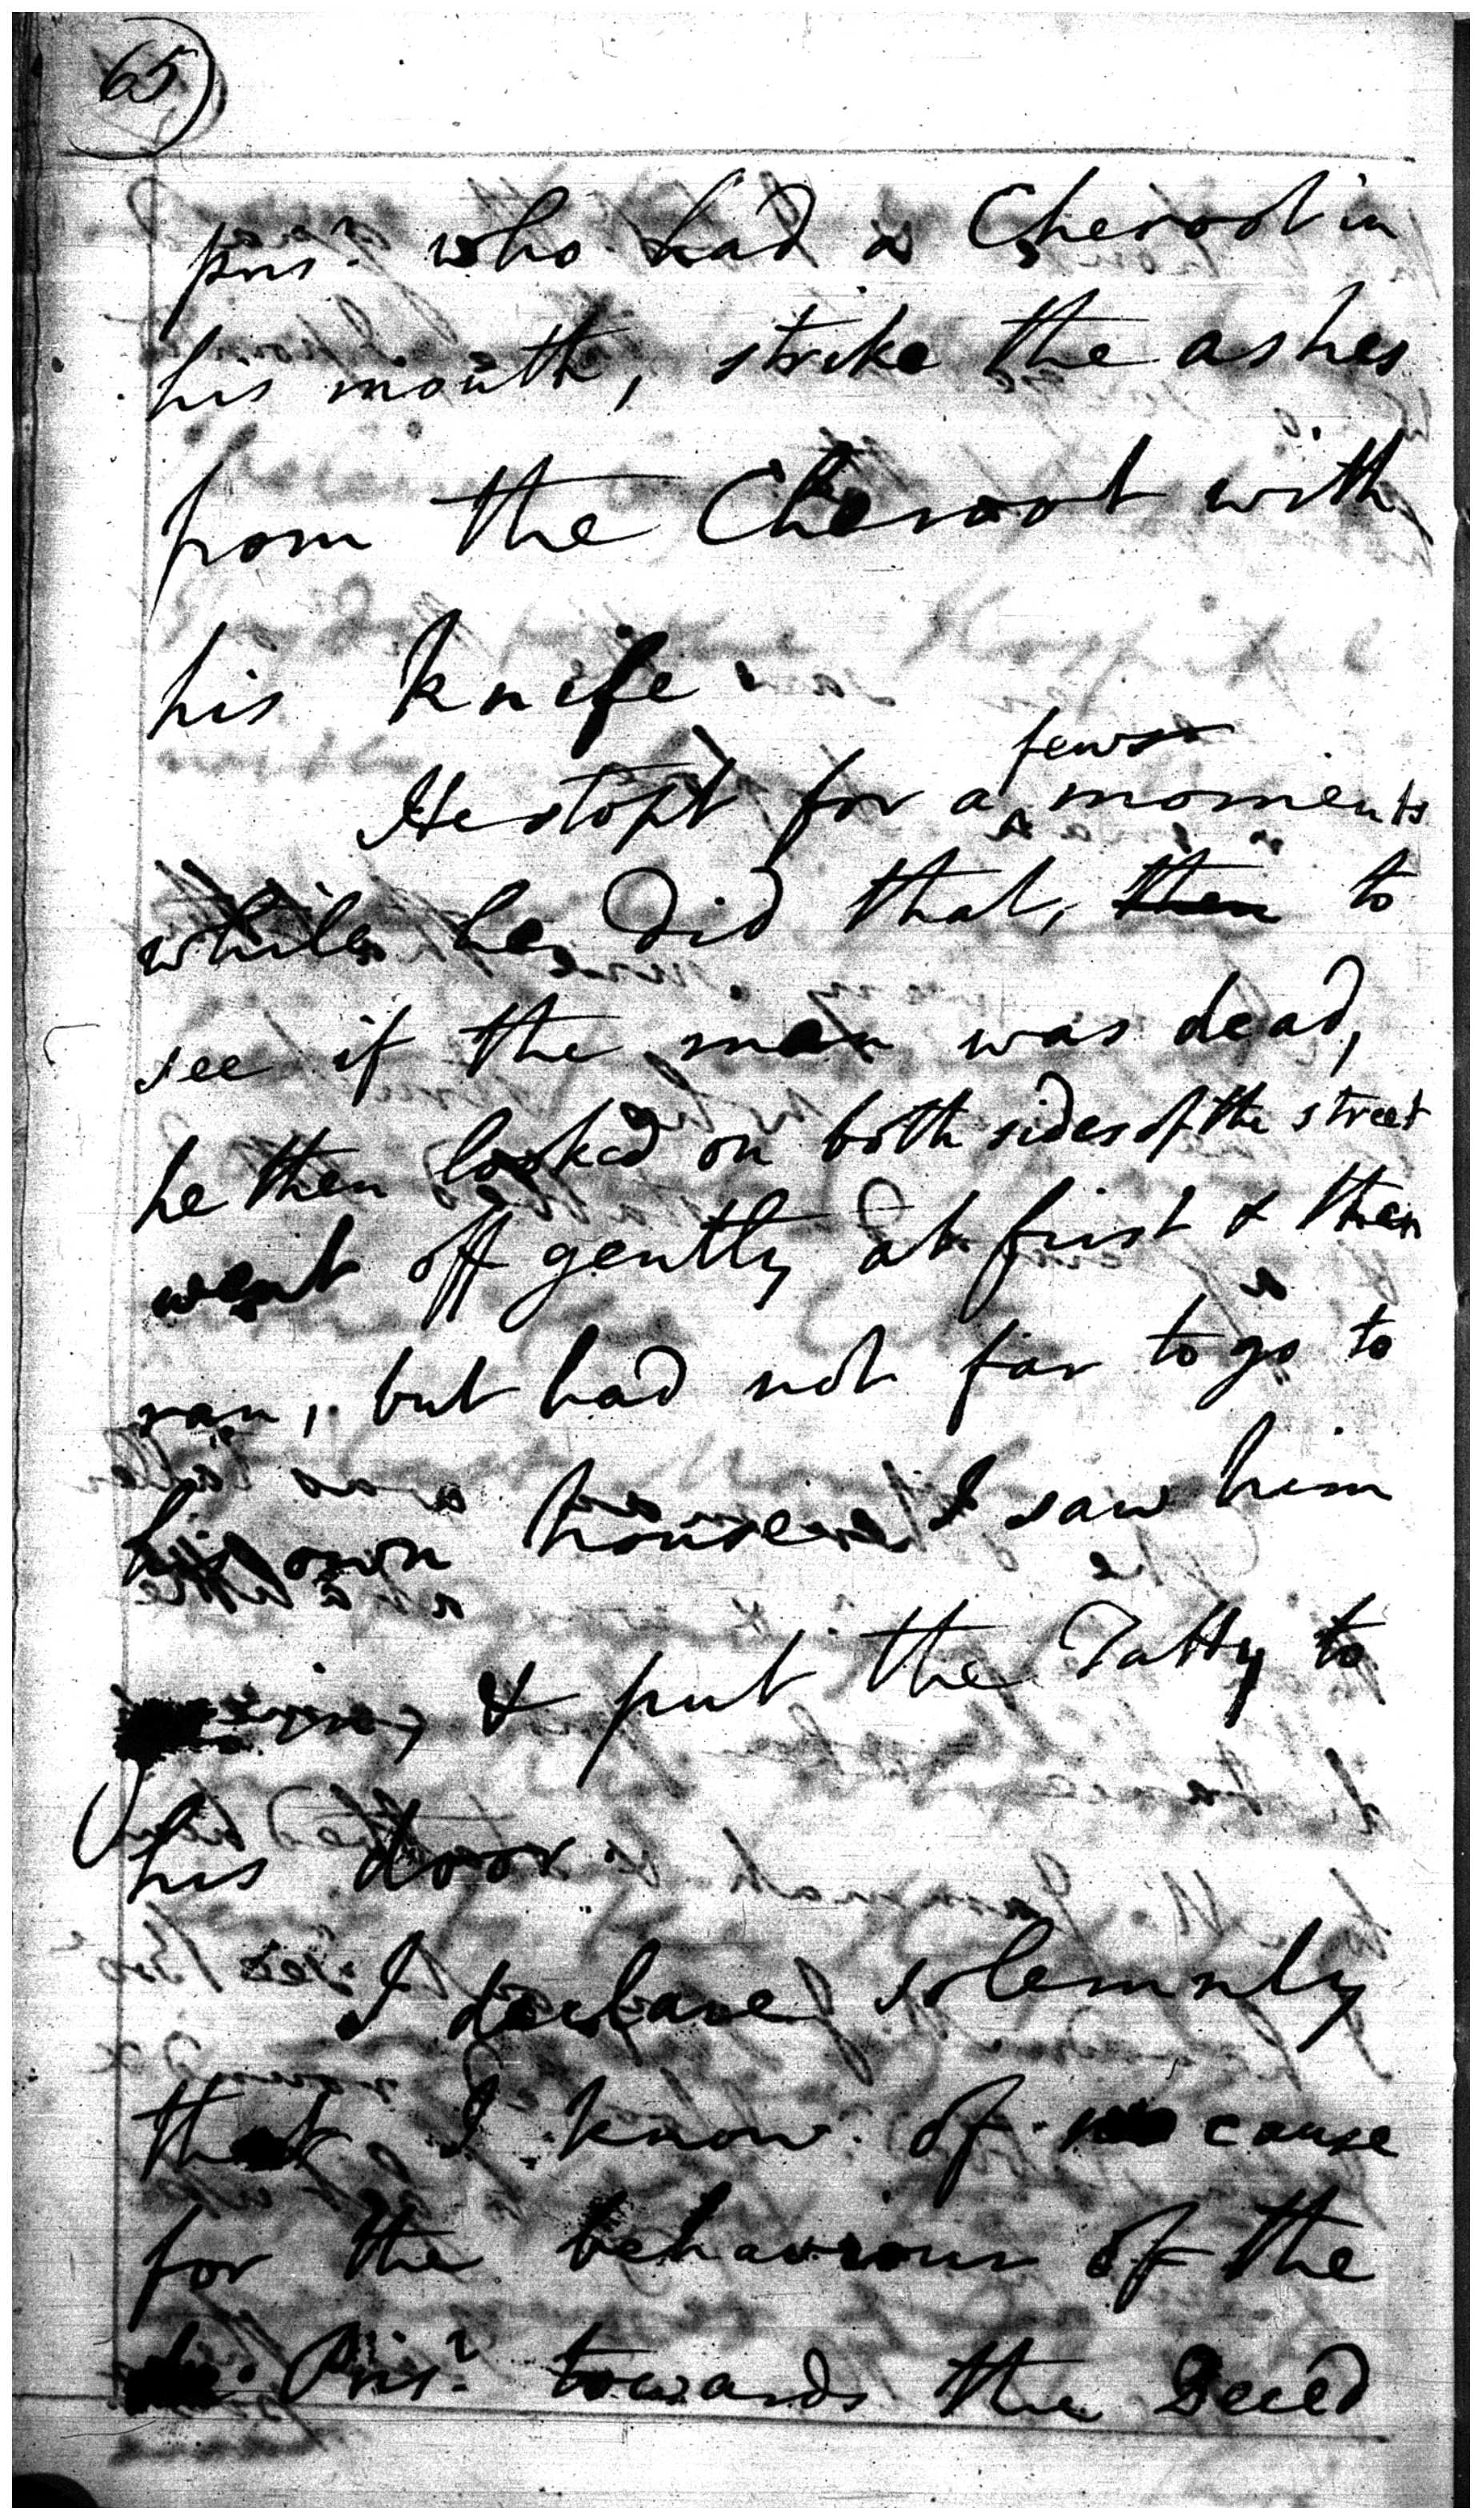 65
pris.r who had a Cheroot in
his mouth, strike the ashes
from the Cheroot with
his knife.
few
He stopt for a moments
while he did that, then to
see if the man was dead,
he then looked on both sides of the street
went off gently at first & then
ran, but had not far to go to
his own house I saw him
& put the Tatty to
his door.
I declare solemnly
that I know of no cause
for the behaviour of the
Pris.r towards the Deced